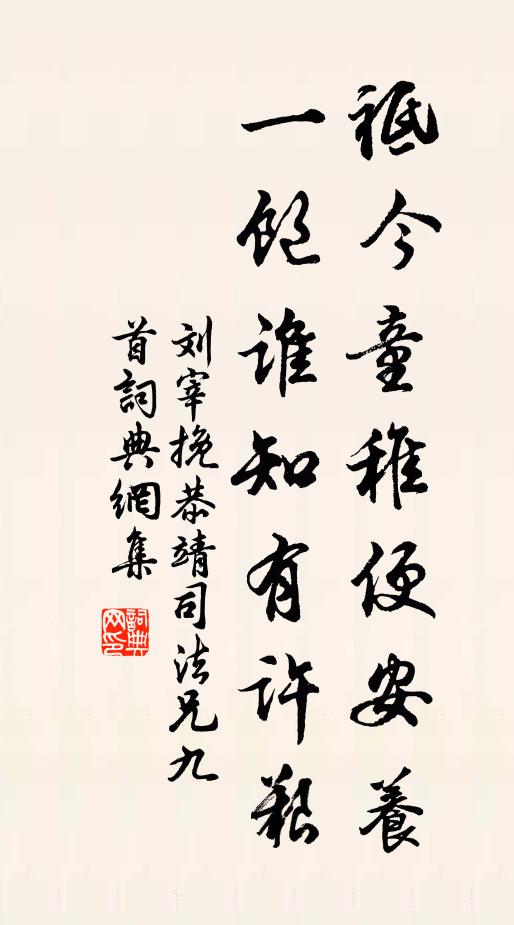 祗今童稚便安養
一飽誰知有許艱
刘宰挽恭靖司法兄九
首詞典網集
詞典网印